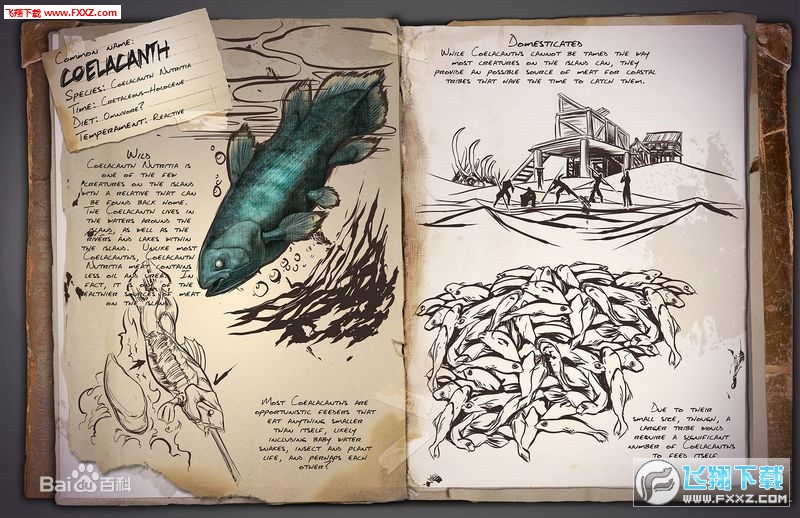 飞翔下载 www.FXXZ.com
Common name:
Coelacanth
Species: Coelacanth Nutritia
Time: Cretaceous-Holocene
Diet: Omnivore?
Temperament: Reactive
Wild
Coelacanth Nutritia is
one of the few
creatures on the island
with a relative that can
be found back home.
The Coelacanth lives in
the waters around the
island, as well as the
rivers and lakes within
the island. Unlike most
Coelacanths, Coelacanth
Nutritia meat contains
less oil and urea. In
fact, it is one of the
healthier sources of meat
on the island.
Most Coelacanths are
opportunistic feeders that
eat anything smaller
than itself, likely
including baby water
snakes, insect and plant
life, and perhaps each
other?
Domesticated
While Coelacanths cannot be tamed the way
most creatures on the island can, they
provide an possible source of meat for coastal
tribes that have the time to catch them.
Due to their
small size, though, a
larger tribe would
require a significant
number of Coelacanths
to feed itself
Bai百科
飞翔下载
WWW.FXXZ.COM